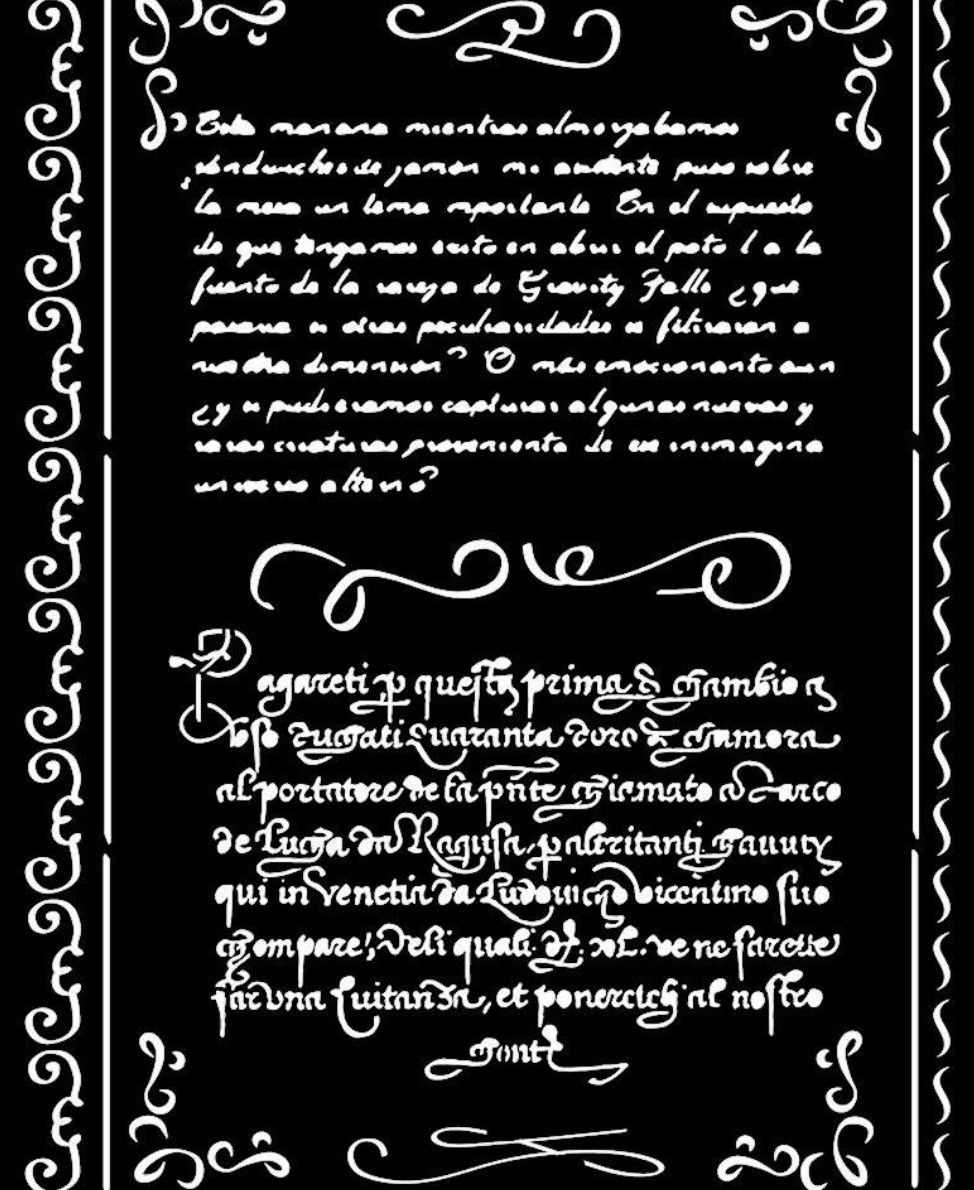 Esta manana mientras almorzabamos
sandwiches de jamon mi puso sobre
la mesa un tema mportante En el supuesto
de que tengamos exito en abrir el la
fuente de la rareza de Gravity Falls ¿que
pasaria si otras peculiaridades se filtraran a
nuestra dimension? O mas emocionante aun
¿y si pudieramos capturar algunas nuevas y
raras criaturas proveniente de un inimagina
alterno?
agareti p questa prima di chambio a
loso Ducati Quaranta doro di chamora
al portatore de la pnte chiamato Marco
de Lucha da Ragusa, p altritanti hauuty
qui in Venetia da Ludouicho vicentino suo
chompare; Deli quali xL. ve ne farette
far vna Quitanza, et ponercich al nostro
Cont